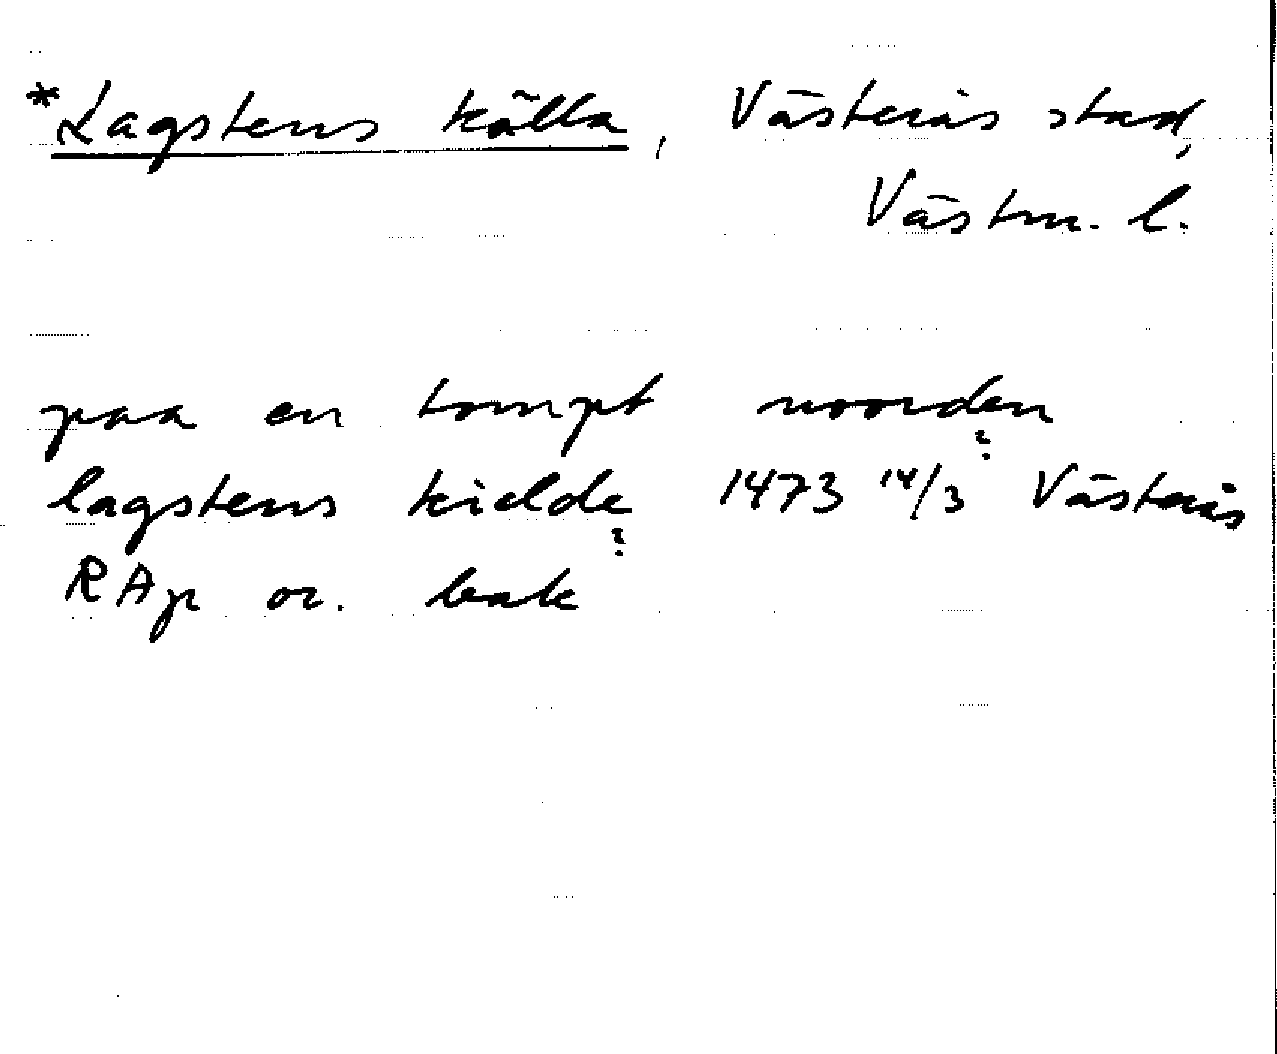 *Lagstens källa, Västerås stad,
Västm. l.
paa en tompt noorden
?
lagstens kielde 1473 14/3 Västerås
?
RAp or. bak